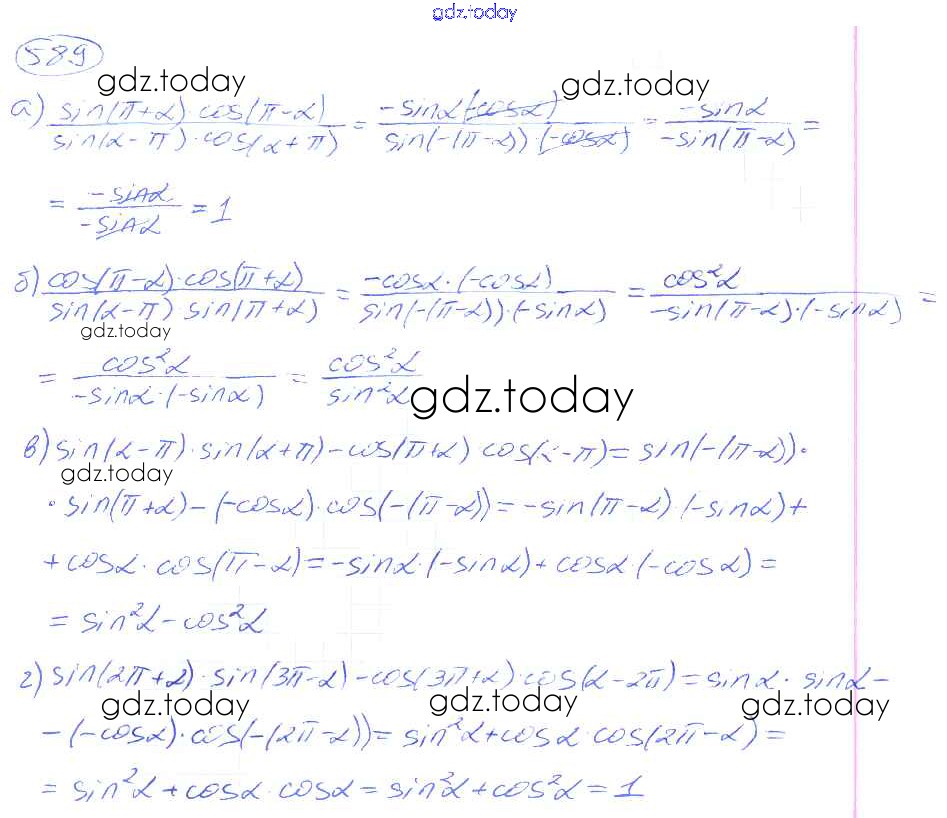 gdz.today
589
gdz.today gdz.today
а) sin(π+α)·cos(π-α) / sin(α-π)·cos(α+π) = -sinα(-cosα) / sin(-(π-α))·(-cosα) = -sinα / -sin(π-α) =
= -sinα / -sinα = 1
б) cos(π-α)·cos(π+α) / sin(α-π) sin(π+α) = -cosα·(-cosα) / sin(-(π-α))·(-sinα) = cos²α / -sin(π-α)·(-sinα) =
gdz.today
= cos²α / -sinα·(-sinα) = cos²α / sin²α
gdz.today
в) sin(α-π)·sin(α+π)-cos(π+α) cos(α-π)= sin(-(π-α))·
gdz.today
· sin(π+α)-(-cosα)·cos(-(π-α))= -sin(π-α)·(-sinα)+
+cosα·cos(π-α)= -sinα·(-sinα)+cosα·(-cosα)=
= sin²α-cos²α
г) sin(2π+α)·sin(3π-α)-cos(3π+α)·cos(α-2π)= sinα· sinα-
gdz.today gdz.today gdz.today
-(-cosα)·cos(-(2π-α))= sin²α+cosα cos(2π-α)=
= sin²α+cosα·cosα= sin²α+cos²α=1